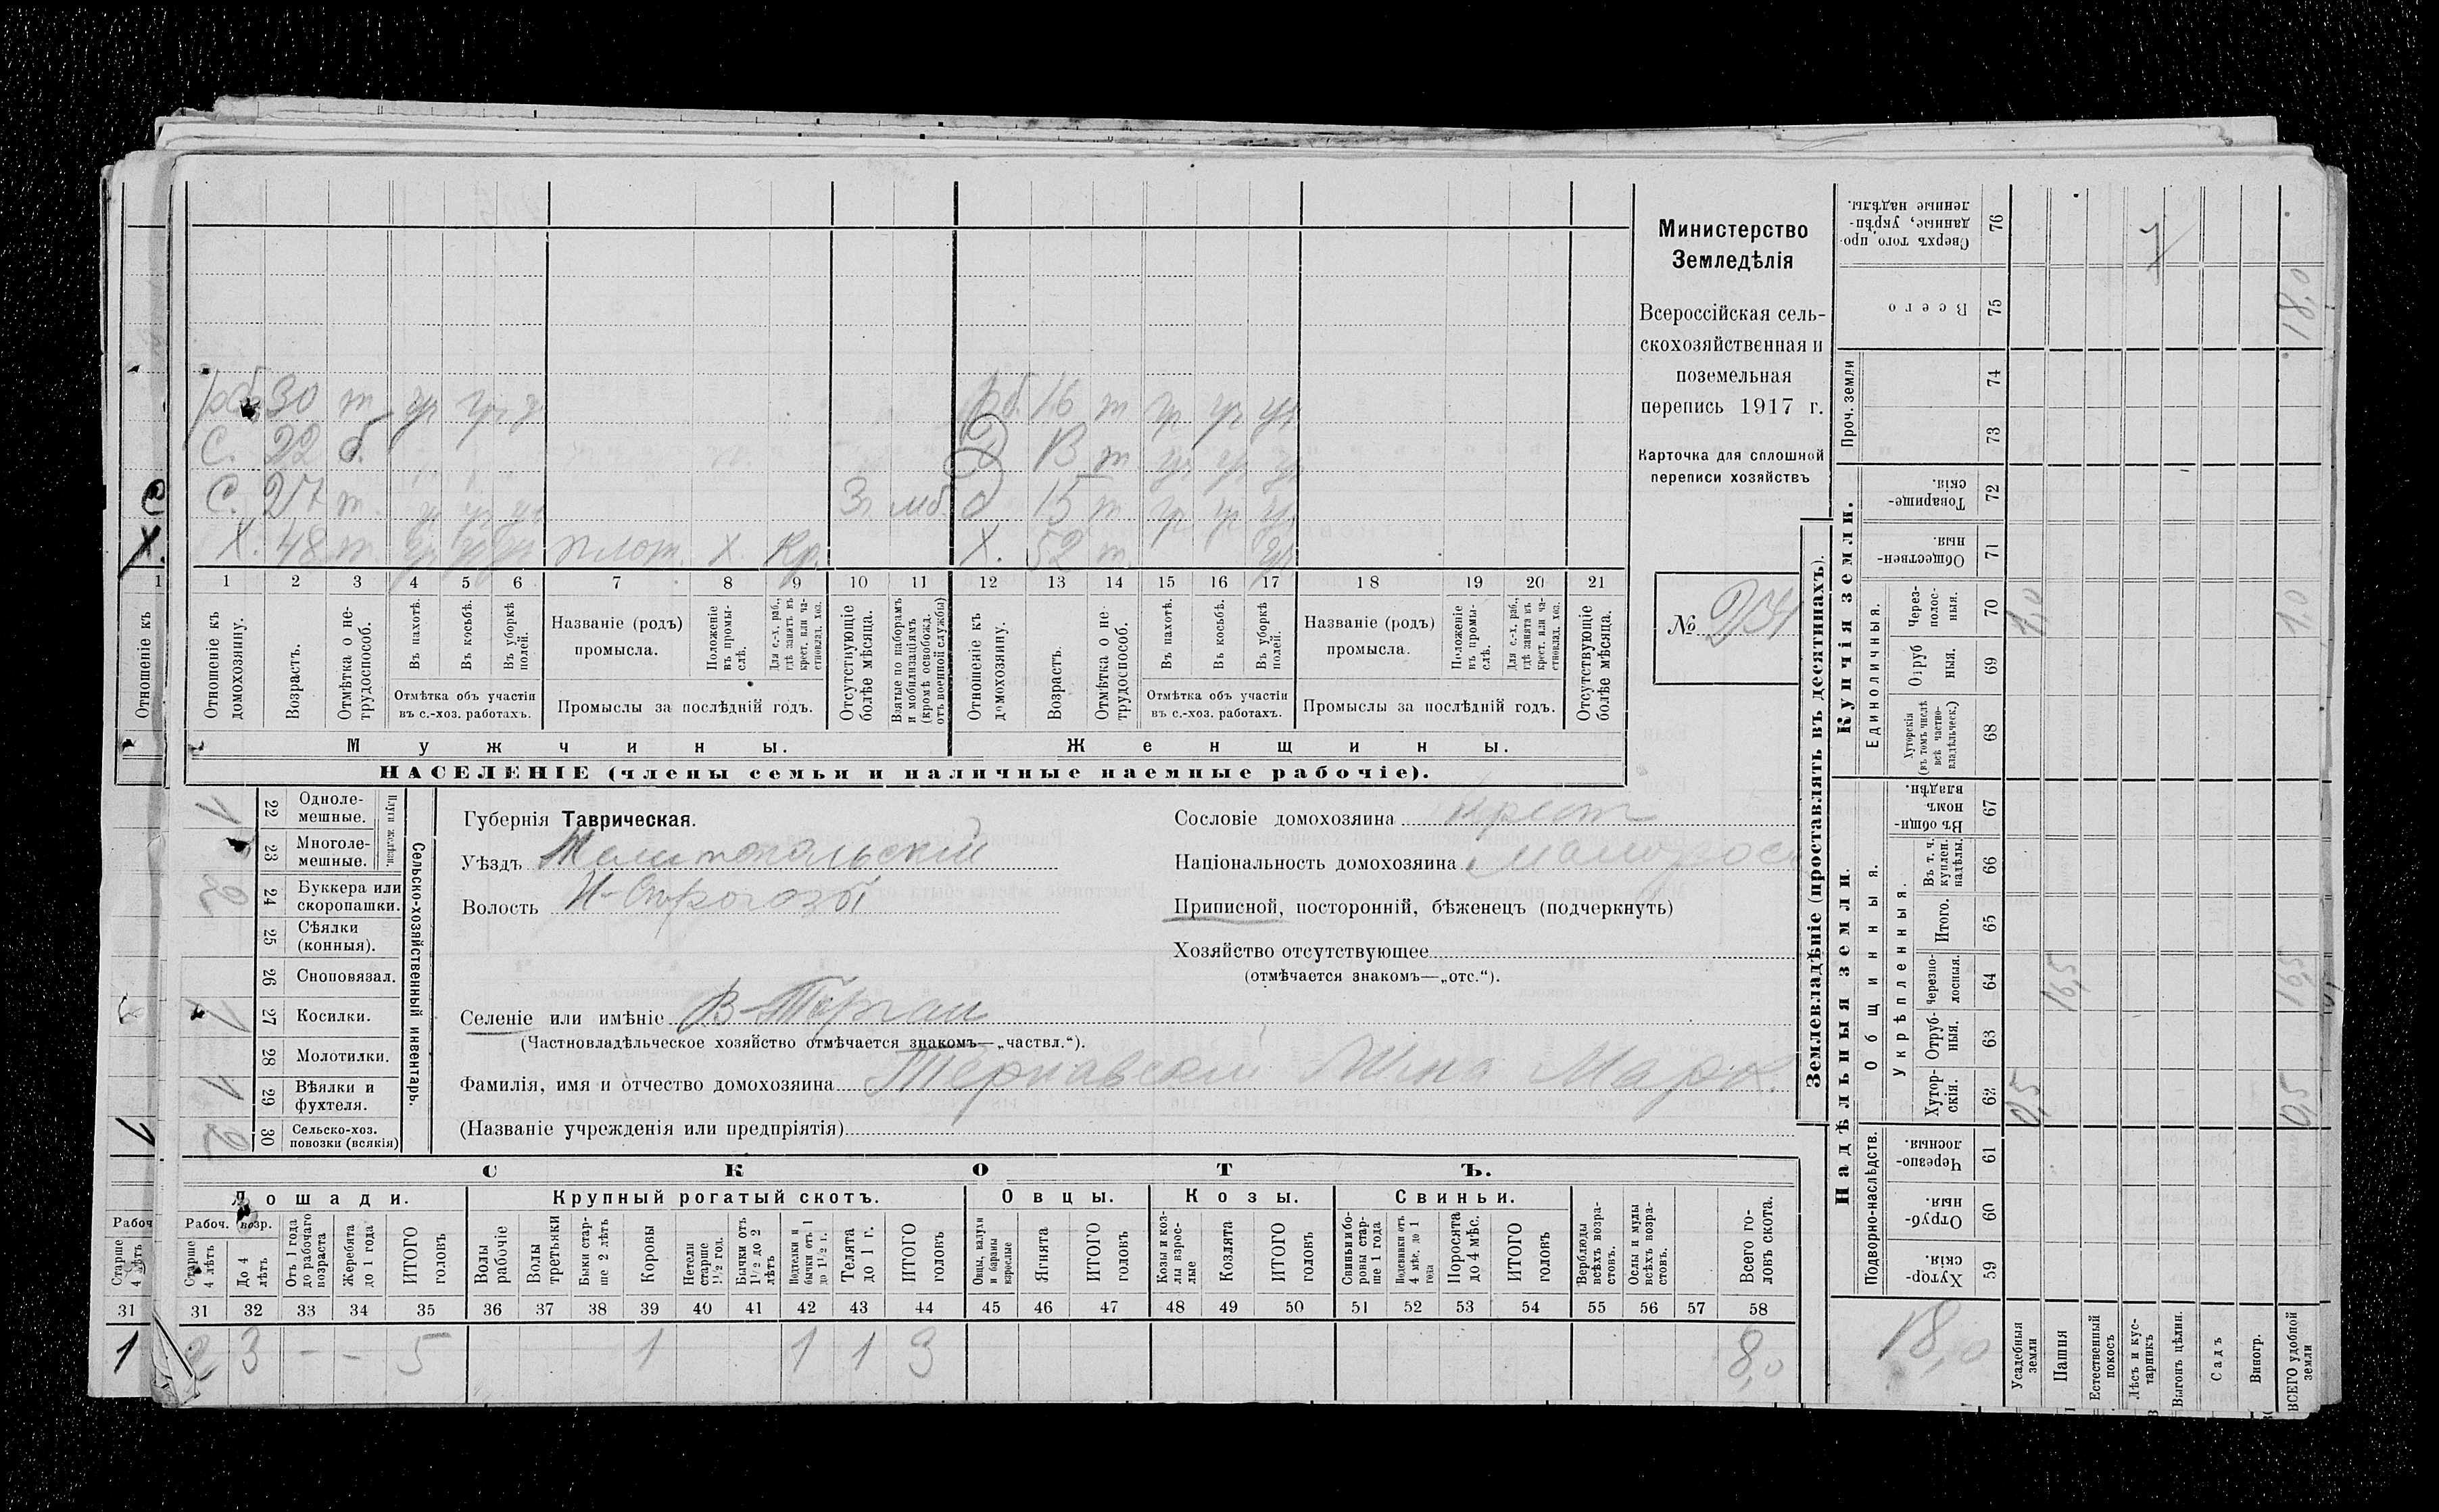 Министерство
Земледѣлія
Всероссійская сель-
скохозяйственная и
поземельная
перепись 1917 г.
Карточка для сплошной
переписи хозяйствъ
№ 204
рб. 30 т гр гр гр
рб. 16 т гр гр гр
С. 22 б.
Д 13 т гр гр гр
С. 27 т. гр гр гр
З. мб.
Д 15 т гр гр гр
Х. 48 т. гр гр гр плот. Х. Кр.
Х. 52 т. гр
1 2 3 4 5 6 7 8 9 10 11 12 13 14 15 16 17 18 19 20 21
Отношеніе къ домохозяину.
Возрастъ.
Отмѣтка о не-трудоспособ.
Въ пахотѣ.
Въ косьбѣ.
Въ уборкѣ полей.
Отмѣтка объ участіи
въ с.-хоз. работахъ.
Названіе (родъ)
промысла.
Положеніе въ промы-слѣ.
Для с.-х. раб., гдѣ занятъ въ крест. или ча-стновлад. хоз.
Промыслы за послѣдній годъ.
Отсутствующіе болѣе мѣсяца.
Взятые по наборамъ и мобилизаціямъ (кромѣ освобожд. отъ военной службы)
Отношеніе къ домохозяину.
Возрастъ.
Отмѣтка о не-трудоспособ.
Въ пахотѣ.
Въ косьбѣ.
Въ уборкѣ полей.
Отмѣтка объ участіи
въ с.-хоз. работахъ.
Названіе (родъ)
промысла.
Положеніе въ промы-слѣ.
Для с.-х. раб., гдѣ занята въ крест. или ча-стновлад. хоз.
Промыслы за послѣдній годъ.
Отсутствующіе болѣе мѣсяца.
Мужчины.
Женщины.
НАСЕЛЕНІЕ (члены семьи и наличные наемные рабочіе).
Сельско-хозяйственный инвентарь.
Плуги желѣзн.
1 22 Одноле-мешные.
23 Многоле-мешные.
2 24 Буккера или скоропашки.
25 Сѣялки (конныя).
26 Сноповязал.
1 27 Косилки.
28 Молотилки.
1 29 Вѣялки и фухтеля.
2 30 Сельско-хоз. повозки (всякія)
Губернія Таврическая.
Уѣздъ Мелитопольскій
Волость Н-Сѣрогозы
Селеніе или имѣніе В-Торгаи
(Частновладѣльческое хозяйство отмѣчается знакомъ—„частвл.“).
Фамилія, имя и отчество домохозяина Тернавскій Мина Марк.
(Названіе учрежденія или предпріятія)
Сословіе домохозяина крест
Національность домохозяина малорос
Приписной, посторонній, бѣженецъ (подчеркнуть)
Хозяйство отсутствующее
(отмѣчается знакомъ—„отс.“).
СКОТЪ.
Лошади.
Крупный рогатый скотъ.
Овцы.
Козы.
Свиньи.
Рабоч. возр.
Старше 4 лѣтъ
До 4 лѣтъ
Отъ 1 года до рабочаго возраста
Жеребята до 1 года
ИТОГО головъ
Волы рабочіе
Волы третьяки
Быки стар-ше 2 лѣтъ
Коровы
Нетели старше 1½ год.
Бычки отъ 1½ до 2 лѣтъ
Подтелки и бычки отъ 1 до 1½ г.
Телята до 1 г.
ИТОГО головъ
Овцы, валухи и бараны взрослые
Ягнята
ИТОГО головъ
Козы и коз-лы взрос-лые
Козлята
ИТОГО головъ
Свиньи и бо-ровы стар-ше 1 года
Подсвинки отъ 4 мѣс. до 1 года
Поросята до 4 мѣс.
ИТОГО головъ
Верблюды всѣхъ возра-стовъ.
Ослы и мулы всѣхъ возра-стовъ.
Всего го-ловъ скота.
31 32 33 34 35 36 37 38 39 40 41 42 43 44 45 46 47 48 49 50 51 52 53 54 55 56 57 58
2 3 - - 5 1 1 1 3 8,0
Землевладѣніе (проставлять въ десятинахъ).
Надѣльныя земли.
Купчія земли.
Проч. земли
Подворно-наслѣдств.
Общинныя.
Укрѣпленныя.
Единоличныя.
59 Хутор-скія.
60 Отруб-ныя.
61 Черезпо-лосныя.
62 Хутор-скія.
63 Отруб-ныя.
64 Черезпо-лосныя.
65 Итого.
66 Въ т. ч. куплен. надѣлы.
67 Въ общин-номъ владѣн.
68 Хуторскія (въ томъ числѣ всѣ частно-владѣльческ.)
69 Отруб-ныя.
70 Через-полос-ныя.
71 Обществен-ныя.
72 Товарище-скія.
73
74
75 Всего
76 Сверхъ того, про-данные, укрѣп-ленные надѣлы.
18,0
Усадебныя земли 0,5 1,0
Пашня 16,5
Естественный покосъ
Лѣсъ и кус-тарникъ
Выгонъ цѣлин.
Садъ
Виногр.
ВСЕГО удобной земли 0,5 16,5 1,0 18,0
Отношеніе къ
1
С
Х.
Рабоч
Старше 4 лѣтъ
31
1